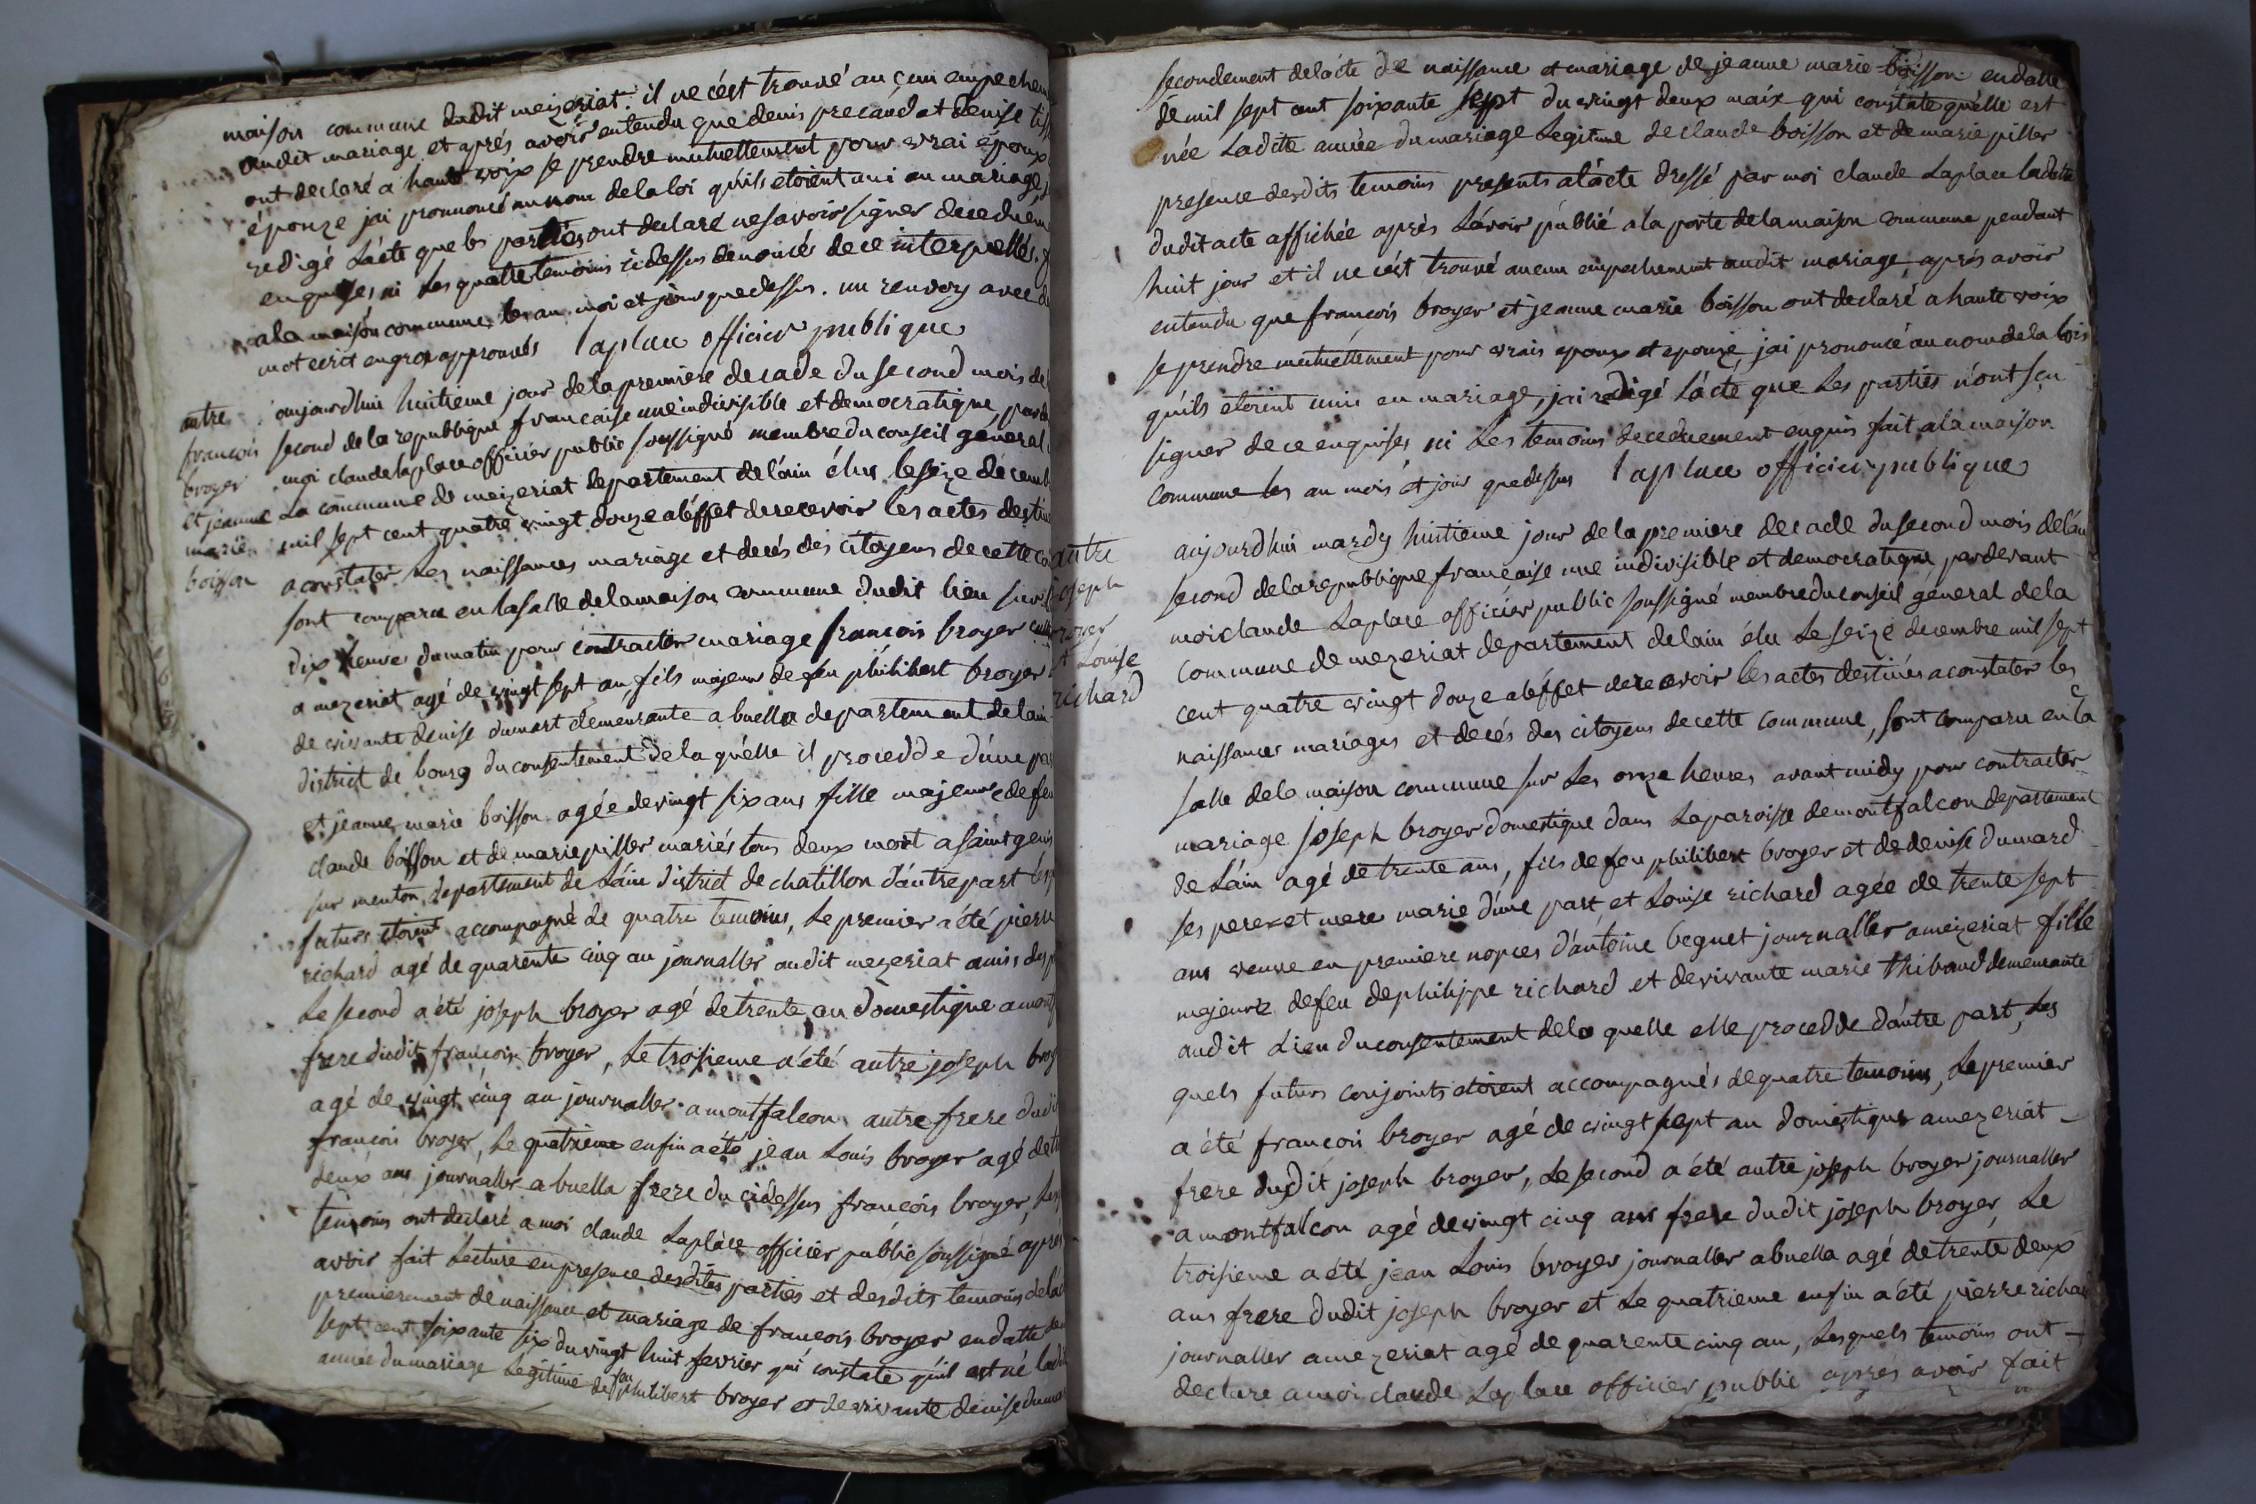 maison commune dudit meizeriat. il ne cést trouvé auçun empechem
audit mariage et aprés avoir entendu que denis precaud et denise
ont declaré a haute voix se prendre mutuellement pour vrai époux
épouze jai prononcé au nom de la loi quils etoient uni en mariage, j
redigé L'ácte que les parties ont declaré ne savoir signer de ce duem
enquises ni Les quattre temoins cidessus denoncés de ce interpellés, f
a la maison commune les an moi et jour que dessus. un renvoy avec
mot ecrit en gros approuvés Laplace officier publique
autre
françois
broyer
et jeanne
marie
boisson
aujourdhui huitieme jour de la premiere decade du second mois de
second de la republique francaise une indivisible et democratique, par de
moi claude laplace officier public soussigné membre du conseil general
La commune de meizeriat departement de l'ain élus le seize decemb
mil sept cent quatre vingt douze a léffet de recevoir les actes destin
a constater Les naissances mariage et decés des citoyens de cette co
sont comparu en la salle de la maison commune dudit lieu sur
dix heures du matin pour contracter mariage françois broyer
a mezeriat agé de vingt sept an, fils majeur de feu philibert broyer
de vivante denise dumart demeurante a buella departement de lain
district de bourg du consentement de la quélle il procedde d'úne pa
et jeanne marie boisson agée de vingt six ans fille majeure de feu
claude boisson et de marie piller mariés tous deux mort a saint genis
sur menton, departement de L'áin district de chatillon dáutre part
futurs etoient accompagné de quatre temoins, Le premier a été pierre
richard agé de quarente cinq an journallier audit mezeriat amis des
Le second a été joseph broyer agé de trente an domestique a mont
frere dudit françois broyer, Le troisieme a été autre joseph broy
agé de vingt cinq an journaller a montfalcon autre frere dudi
françois broyer, Le quatrieme enfin a été jean Louis broyer agé de
deux ans journaller a buella frere du cidessus françois broyer,
temoins ont declaré a moi claude Laplace officier public soussigné aprés
avoir fait Lecture en presence desdites parties et desdits temoins de l'ác
premierement de naissance et mariage de françois broyer en datte
sept cent soixante six du vingt huit fevrier qui constate quil est né ladi
année du mariage Légitime de feu philibert broyer et de vivante denise dumar
secondement de l'ácte de naissance et mariage de jeanne marie boisson en datte
de mil sept cent soixante sept du vingt deux maix qui constate quélle est
née Ladite année du mariage Legitime de claude boisson et de marie piller
presence desdits temoins presents a l'ácte dressé par moi claude Laplace ladatte
dudit acte affichée aprés L'ávoir publié a la porte de la maison commune pendant
huit jour et il ne cést trouvé aucun empechement audit mariage, aprés avoir
entendu que françois broyer et jeanne marie boisson ont declaré a haute voix
se prendre mutuéllement pour vrais epoux et epouze, jai prononcé au nom de la lois
quils etoient unis en mariage, jai redigé L'ácte que Les parties n'ont sçu
signer de ce enquises ni Les temoins de ce duement enquis fait a la maison
commune les an mois et jour que dessus Laplace officier publique
autre
joseph
broyer
et Louise
richard
aujourdhui mardy huitieme jour de la premiere decade du second mois de l'án
second de la republique françoise une indivisible et democratique par devant
moi claude Laplace officier public soussigné membre du conseil général de la
commune de mezeriat departement de lain élu Le seize decembre mil sept
cent quatre vingt douze a léffet de recevoir les actes destinés a constater les
naissances mariages et decés des citoyens de cette commune, sont comparu en la
salle de la maison commune sur Les onze heures avant midy pour contracter
mariage joseph broyer domestique dans La paroisse de montfalcon departement
de L'áin agé de trente ans, fils de feu philibert broyer et de denise dumard
ses pere et mere marie d'úne part et Louise richard agée de trente sept
ans veuve en premiere nopces d'antoine beguet journaller a meizeriat fille
majeure de feu de philippe richard et de vivante marie thibaud demeurante
audit Lieu du consentement de la quelle elle procedde dáutre part, Les
quels futurs conjoints etoient accompagnés de quatre temoins, Le premier
a été francois broyer agé de vingt sept an domestique a mezeriat
frere dudit joseph broyer, Le second a été autre joseph broyer journaller
a montfalcon agé de vingt cinq ans frere dudit joseph broyer, Le
troisieme a été jean Louis broyer journaller a buella agé de trente deux
ans frere dudit joseph broyer et Le quatrieme enfin a été pierre richar
journaller a mezeriat agé de quarente cinq an, Lesquels temoins ont
declare a moi claude Laplace officier public aprés avoir fait